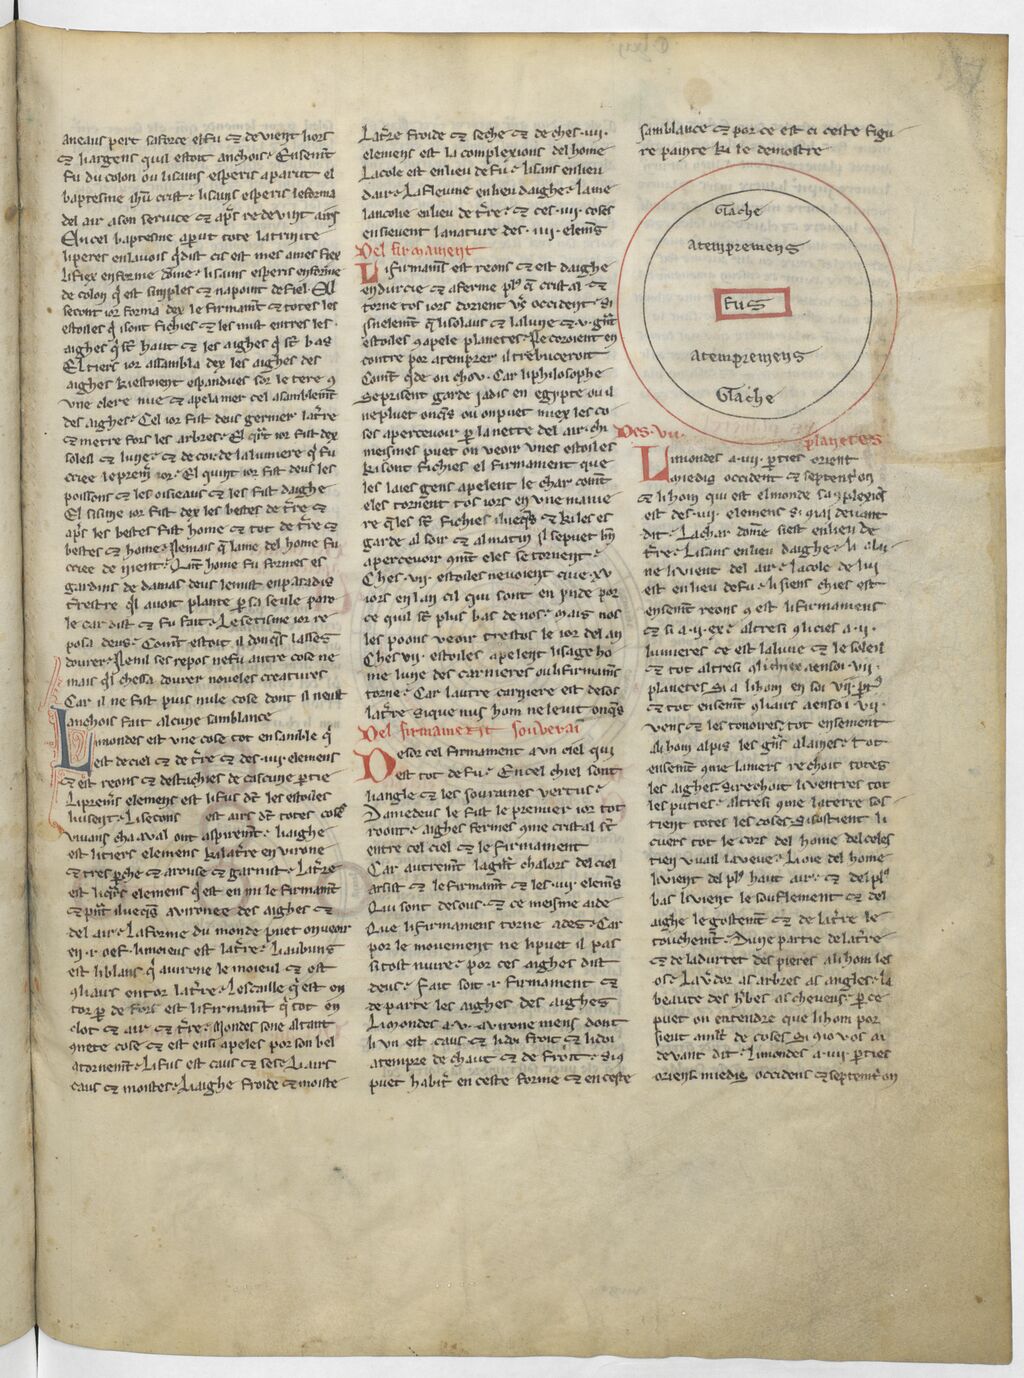 aneaus pert saforce el fu ⁊ devient hors
⁊ liargens quil estoit anchois. Ensemt
fu du colon ou lisains esperis aparut el
baptesme ihu crist. lisains esperis le forma
del air a son service ⁊ apres redevint airs
En cel baptesme aparut tote la trinite
liperes en la vois q dist cis est mes ames fiex
li fiex en forme dome. lisains esperis en forme
de colon q est simples ⁊ na point de fiel. El
secont ior forma dex le firmamt ⁊ totes les
estoiles q i sont fichies ⁊ les mist entres les
aighes q st haut ⁊ les aighes q st bas
El tiers ior assambla dex les aighes des
aighes ki estoient espandues sor le tere 9
une clere nue ⁊ apela mer cel asamblemt
des aighes. Cel ior fist deus germer la tre
⁊ metre fors les arbres. El qrt ior fist dex
soleil ⁊ lune. ⁊ de cor de la lumiere q fu
criee le premr ior. El quint ior fist deus les
poissons ⁊ les oiseaus ⁊ les fist daighe
El sisime ior fist dex les bestes de tre ⁊
aps les bestes fist home ⁊ tot de tre ⁊
bestes ⁊ home. Nemais q lame del home fu
criee de nient. Qnt home fu formes es
gardins de damas deus lemist en paradis
trestre ql avoit plante p sa seule paro
le car dist ⁊ fu fait. Le setisme ior re
posa deus. Comt estoit il donqs lasses
dovrer. Nenil ses repos ne fu autre cose ne
mais ql chessa dovrer noveles creatures
Car il ne fist puis nule cose dont il neust
anchois fait alcune samblance
Li mondes est une cose tot ensanble q
est de ciel ⁊ de tre ⁊ des .iiii. elemens
⁊ est reons ⁊ destachies de cascune ptie
Li premrs elemens est li fus dt les estoiles
luisent. Li secons est airs dt totes coses
vivans cha aval ont aspiremt. liaighe
est litiers elemens ki la tre environe
⁊ tresperche ⁊ arouse ⁊ garnist. La tre
est li qrs elemens q est en mi le firmamt
⁊ pnt ilueqs avironee des aighes ⁊
del air. La forme du monde puet on veoir
en .i. oef. li moieus est la tre. liaubuns
est liblans q avirone le moieul ⁊ ost
9 liairs entor la tre. Lescaille q est en
tor p de fors est li firmamt q tot en
clot ⁊ air ⁊ tre. Mondes sone altant
9 nete cose ⁊ est ensi apeles por son bel
atornemt. Li fus est caus ⁊ ses. Liairs
caus ⁊ moistes. Liaighe froide ⁊ moiste
La tre froide ⁊ seche ⁊ de ches .iiii.
elemens est li complexions del home
La cole est en lieu de fu. lisans en lieu
dair. Li fleume en lieu daighe. la me
lancolie en lieu de tre. ⁊ ces .iiii. coses
ensievent la nature des .iiii. elems
Del firmament
Li firmams est reons ⁊ est daighe
endurcie ⁊ aferme pl9 q cristal ⁊
torne tos iors dorient vs occident. si
isnelemt q lisolaus ⁊ la lune ⁊ .v. grns
estoiles 9 apele planetes. Ne coroient en
contre por atemprer il trebuceroit
Comt q de on chou. Car li philosophe
se prisent garde iadis en egypte ou il
ne pluet onqs ou on puet miex les co
ses apercevoir p la nette del air. chi
meismes puet on veoir unes estoiles
ki sont fichies el firmament que
les laies gens apelent le char comt
eles tornent tos iors en une manie
re q les st fichies ilueqs ⁊ ki les es
garde al soir ⁊ al matin il sepuet bn
apercevoir 9mt eles se tornent.
Ches .vii. estoiles ne voient que .xv
iors en lan cil qui sont en ynde por
ce quil st plus bas de nos. mais nos
les poons veoir trestos le ior del an
Ches .vii. estoiles apelent lisage ho
me lune des carnieres ou li firmams
torne. Car lautre carniere est desos
la tre si que nus hom ne le uit onqs
Del firmament souverain
Desor cel firmament a un ciel qui
est tot de fu. En cel chiel sont
liangle ⁊ les souraines vertus.
Damedeus le fist le premier ior tot
roont. aighes fermes 9me cristal st
entre cel ciel ⁊ le firmament
Car autremt la grt chalors del ciel
arsist ⁊ le firmamt ⁊ les .iiii. elems
Qui sont desous. ⁊ ce meisme aide
Que li firmamens torne ades. Car
por le movement ne li puet il pas
si tost nuire. por ces aighes dist
deus. fait soit .i. firmament ⁊
de parte les aighes des aighes
Li mondes a .v. avirone mens dont
li un est caus ⁊ li doi froit ⁊ li doi
atempre de chaut ⁊ de froit. si 9
puet habitr en ceste forme ⁊ en ceste
samblance ⁊ por ce est ci ceste figu
re painte ki le demostre
Glache
atempremens
fus
atempremens
Glache
Des .vii.
planetes
Li mondes a .iiii. pties orient
miedis occident ⁊ septentrion
⁊ li hom qui est el monde sa 9plexions
est des .iiii. elemens si qiai devant
dit. La char dome siest en lieu de
tre. Lisans en lieu daighe. li alai
ne li vient del air. la cole de lui
est en lieu de fu. lisiens chies est
ensemt reons 9 est li firmamens
⁊ si a .ii. ex. altresi 9 li ciex a .ii.
lumieres ce est la lune ⁊ le soleil
⁊ tot altresi 9 li chiex a en soi .vii.
planetes. si a li hom en soi .vii. pts
⁊ tot ensemt 9 liairs a en soi .vii
vens ⁊ les tonoires. tot ensement
a li hom al pis les grns alaines. Tot
ensemt 9me la mers rechoit totes
les aighes. si rechoit li ventres tot
les puties. altresi 9me la terre sos
tient totes les coses. si sostient li
cuers tot le cors del home del coles
tien vuail la veue. Laoie del home
li vient del pl9 haut air. ⁊ del pl9
bas li vient le souflement ⁊ del
aighe le gostemt ⁊ de la tre le
touchemt. Dune partie de la tre
⁊ de la durtet des pieres a li hom les
os. La vdor as arbres as angles. la
beaute des hbes as cheveus. p ce
puet on entendre que li hom por
sient amlt de coses. si 9 io vos ai
devant dit. Li mondes a .iiii. pties
oriens. miedis occidens ⁊ septentrion